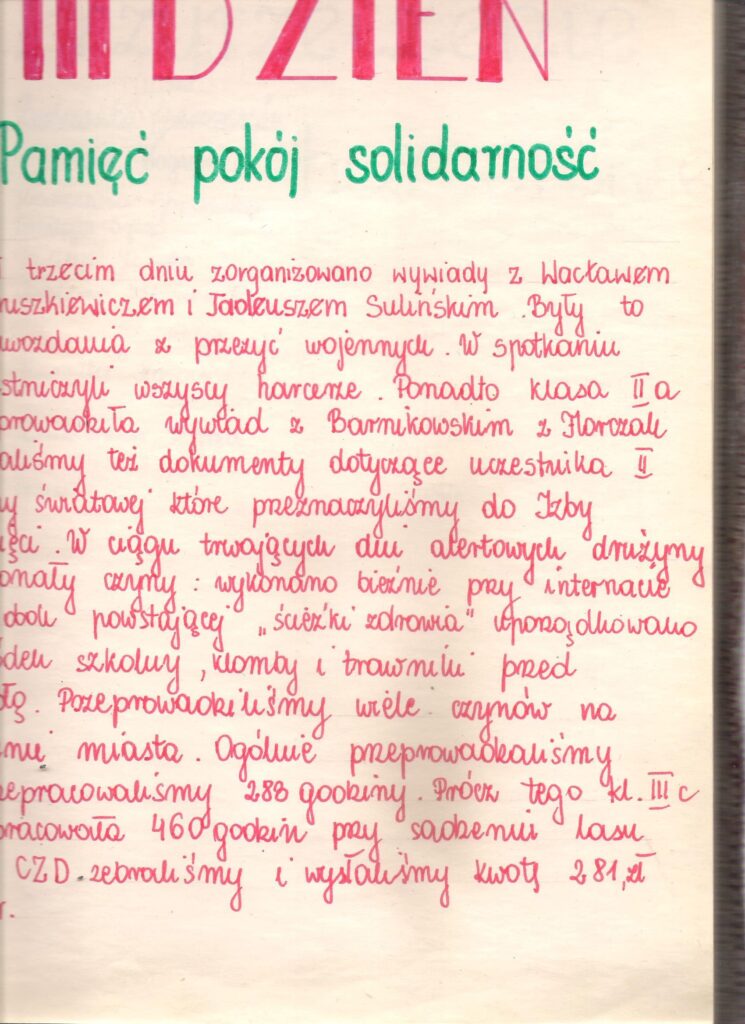 III DZIEŃ
Pamięć pokój solidarność
trzecim dniu zorganizowano wywiady z Wacławem
uszkiewiczem i Tadeuszem Sulińskim. Były to
awozdania z przeżyć wojennych. W spotkaniu
stniczyli wszyscy harcerze. Ponadto klasa II a
prowadziła wywiad z Barnikowskim z Horczak
aliśmy też dokumenty dotyczące uczestnika II
y światowej które przeznaczyliśmy do Izby
ięci. W ciągu trwających dni alertowych drużyny
onały czyny: wykonano bieżnie przy internacie
obok powstającej „ścieżki zdrowia" uporządkowano
ódek szkolny, klomby i trawniki przed
ołą. Przeprowadziliśmy wiele czynów na
enie miasta. Ogólnie przeprowadzaliśmy
zepracowaliśmy 288 godziny. Prócz tego kl. III c
pracowała 460 godzin przy sadzeniu lasu
CZD zebraliśmy i wysłaliśmy kwotę 281, zł
r.